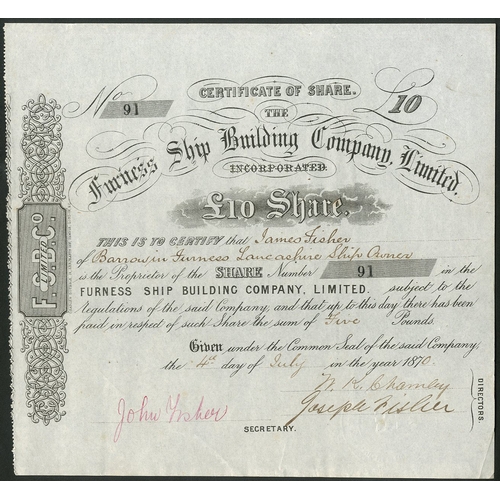 No 91
CERTIFICATE OF SHARE.
£10
THE
Furness Ship Building Company, Limited.
INCORPORATED.
£10 Share.
THIS IS TO CERTIFY that James Fisher
of Barrow in Furness Lancashire Ship Owner
is the Proprietor of the SHARE Number 91 in the
FURNESS SHIP BUILDING COMPANY, LIMITED. subject to the
Regulations of the said Company, and that up to this day there has been
paid in respect of such Share the sum of Five Pounds.
Given under the Common Seal of the said Company,
the 4th day of July in the year 1870
Joseph Fisher
DIRECTORS.
John Fisher
SECRETARY.
F. S. B. Co.